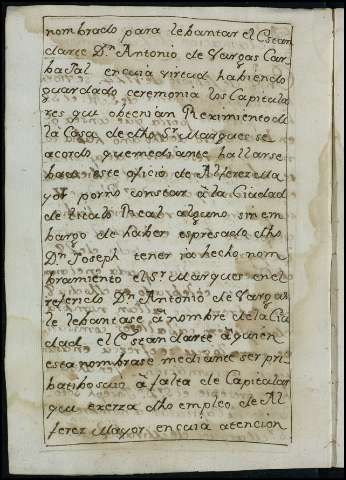 nombrado para lebantar el Estan
darte Dn Antonio de Vargas Car
baJal en cuia virtud habiendo
guardado ceremonia los Capitula
res que obtenian Reximiento de
la Casa de dho Sr Marques se
acordo, que mediante hallarse
baco este oficio de Alferez Ma
yor por no constar à la Ciudad
de titulo Real alguno sin em
bargo de haber espresado dho
Dn Joseph tener ia hecho nom
bramiento el Sr Marques en el
referido Dn Antonio de Vargas
le lebantase à nombre de la Ciu
dad el Estandarte à quien
esta nombrase mediante ser pri
batibo suio à falta de Capitular
que exerza dho empleo de Al
ferez Mayor en cuia atencion